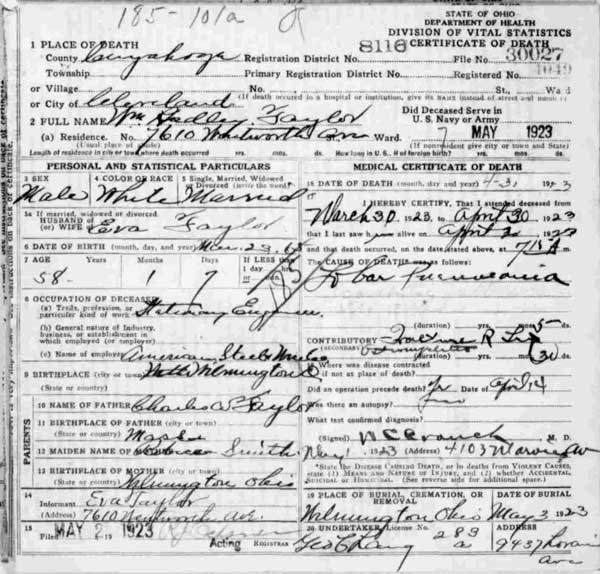 185-101a
STATE OF OHIO
DEPARTMENT OF HEALTH
DIVISION OF VITAL STATISTICS
8116 CERTIFICATE OF DEATH
1 PLACE OF DEATH
County Cuyahoga Registration District No. File No. 30027
Township Primary Registration District No. Registered No.
or Village No. St., Ward
or City of Cleveland (If death occurred in a hospital or institution, give its NAME instead of street and number)
2 FULL NAME Wm Hadley Taylor Did Deceased Serve in U. S. Navy or Army
(a) Residence. No. 7610 Wentworth Ave Ward. 7 MAY 1923
(Usual place of abode) (If nonresident give city or town and State)
Length of residence in city or town where death occurred yrs. mos. ds. How long in U. S., if of foreign birth? yrs. mos. ds.
PERSONAL AND STATISTICAL PARTICULARS
3 SEX 4 COLOR OR RACE 5 Single, Married, Widowed or Divorced (write the word)
Male White Married
5a If married, widowed or divorced
HUSBAND of
(or) WIFE of Eva Taylor
6 DATE OF BIRTH (month, day, and year) Mar. 23,
7 AGE Years Months Days If LESS than
58 1 7 1 day hrs.
8 OCCUPATION OF DECEASED
(a) Trade, profession, or
particular kind of work Stationary Engineer
(b) General nature of industry,
business, or establishment in
which employed (or employer)
(c) Name of employer American Steel &
9 BIRTHPLACE (city or town) Wilmington O
(State or country)
PARENTS
10 NAME OF FATHER Charles Taylor
11 BIRTHPLACE OF FATHER (city or town)
(State or country)
12 MAIDEN NAME OF Smith
13 BIRTHPLACE OF MOTHER (city or town)
(State or country) Wilmington Ohio
14
Informant Eva Taylor
(Address) 7610 Wentworth Ave.
15
Filed MAY 2 -19 1923
Acting REGISTRAR
MEDICAL CERTIFICATE OF DEATH
15 DATE OF DEATH (month, day and year) 4-30 1923
I HEREBY CERTIFY, That I attended deceased from
March 30 1923, to April 30 1923
that I last saw him alive on April 1923
and that death occurred, on the date stated above, at 715 A m.
The CAUSE OF DEATH was as follows:
Lobar Pneumonia
(duration) yrs. mos. 5 ds.
CONTRIBUTORY Fracture R
(SECONDARY)
(duration) yrs. mos. 30 ds.
Where was disease contracted
if not as place of death?
Did an operation precede death? Date of April 4
Was there an autopsy?
What test confirmed diagnosis?
(Signed) M. D.
May 1 1923 4103
*State the DISEASE CAUSING DEATH, or in deaths from VIOLENT CAUSES, state (1) MEANS AND NATURE OF INJURY, and (2) whether ACCIDENTAL, SUICIDAL or HOMICIDAL. (See reverse side for additional space.)
19 PLACE OF BURIAL, CREMATION, OR REMOVAL DATE OF BURIAL
Wilmington Ohio May 3, 1923
20 UNDERTAKER License No. 283 a ADDRESS
Geo C Lang 9437 Lorain
Ave